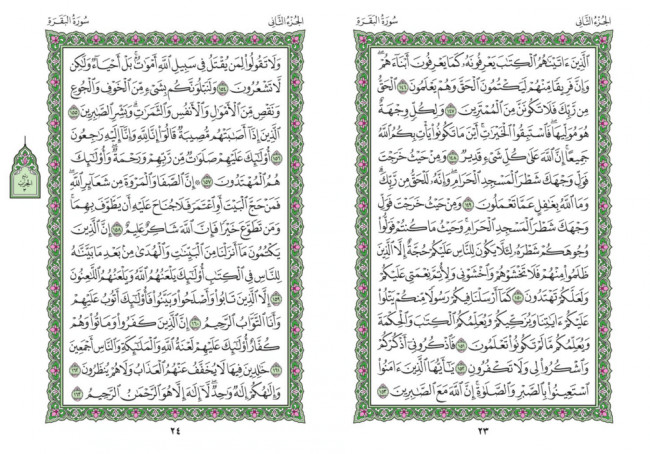 سُورَةُ البَقَرَةِ
الجُزءُ الثَّانِى
الَّذِينَ ءَاتَيْنَٰهُمُ الْكِتَٰبَ يَعْرِفُونَهُۥ كَمَا يَعْرِفُونَ أَبْنَآءَهُمْ ۖ
وَإِنَّ فَرِيقًا مِّنْهُمْ لَيَكْتُمُونَ الْحَقَّ وَهُمْ يَعْلَمُونَ ١٤٦ الْحَقُّ
مِن رَّبِّكَ فَلَا تَكُونَنَّ مِنَ الْمُمْتَرِينَ ١٤٧ وَلِكُلٍّ وِجْهَةٌ
هُوَ مُوَلِّيهَا ۖ فَاسْتَبِقُوا الْخَيْرَٰتِ ۚ أَيْنَ مَا تَكُونُوا يَأْتِ بِكُمُ اللَّهُ
جَمِيعًا ۚ إِنَّ اللَّهَ عَلَىٰ كُلِّ شَىْءٍ قَدِيرٌ ١٤٨ وَمِنْ حَيْثُ خَرَجْتَ
فَوَلِّ وَجْهَكَ شَطْرَ الْمَسْجِدِ الْحَرَامِ ۖ وَإِنَّهُۥ لَلْحَقُّ مِن رَّبِّكَ ۗ
وَمَا اللَّهُ بِغَٰفِلٍ عَمَّا تَعْمَلُونَ ١٤٩ وَمِنْ حَيْثُ خَرَجْتَ فَوَلِّ
وَجْهَكَ شَطْرَ الْمَسْجِدِ الْحَرَامِ ۚ وَحَيْثُ مَا كُنتُمْ فَوَلُّوا
وُجُوهَكُمْ شَطْرَهُۥ لِئَلَّا يَكُونَ لِلنَّاسِ عَلَيْكُمْ حُجَّةٌ إِلَّا الَّذِينَ
ظَلَمُوا مِنْهُمْ فَلَا تَخْشَوْهُمْ وَاخْشَوْنِى وَلِأُتِمَّ نِعْمَتِى عَلَيْكُمْ
وَلَعَلَّكُمْ تَهْتَدُونَ ١٥٠ كَمَآ أَرْسَلْنَا فِيكُمْ رَسُولًا مِّنكُمْ يَتْلُوا
عَلَيْكُمْ ءَايَٰتِنَا وَيُزَكِّيكُمْ وَيُعَلِّمُكُمُ الْكِتَٰبَ وَالْحِكْمَةَ
وَيُعَلِّمُكُم مَّا لَمْ تَكُونُوا تَعْلَمُونَ ١٥١ فَاذْكُرُونِىٓ أَذْكُرْكُمْ
وَاشْكُرُوا لِى وَلَا تَكْفُرُونِ ١٥٢ يَٰٓأَيُّهَا الَّذِينَ ءَامَنُوا
اسْتَعِينُوا بِالصَّبْرِ وَالصَّلَوٰةِ ۚ إِنَّ اللَّهَ مَعَ الصَّٰبِرِينَ ١٥٣
٢٣
سُورَةُ البَقَرَةِ
الجُزءُ الثَّانِى
وَلَا تَقُولُوا لِمَن يُقْتَلُ فِى سَبِيلِ اللَّهِ أَمْوَٰتٌۢ ۚ بَلْ أَحْيَآءٌ وَلَٰكِن
لَّا تَشْعُرُونَ ١٥٤ وَلَنَبْلُوَنَّكُم بِشَىْءٍ مِّنَ الْخَوْفِ وَالْجُوعِ
وَنَقْصٍ مِّنَ الْأَمْوَٰلِ وَالْأَنفُسِ وَالثَّمَرَٰتِ ۗ وَبَشِّرِ الصَّٰبِرِينَ ١٥٥
الَّذِينَ إِذَآ أَصَٰبَتْهُم مُّصِيبَةٌ قَالُوٓا إِنَّا لِلَّهِ وَإِنَّآ إِلَيْهِ رَٰجِعُونَ
١٥٦ أُولَٰٓئِكَ عَلَيْهِمْ صَلَوَٰتٌ مِّن رَّبِّهِمْ وَرَحْمَةٌ ۖ وَأُولَٰٓئِكَ
هُمُ الْمُهْتَدُونَ ١٥٧ ۞ إِنَّ الصَّفَا وَالْمَرْوَةَ مِن شَعَآئِرِ اللَّهِ ۖ
فَمَنْ حَجَّ الْبَيْتَ أَوِ اعْتَمَرَ فَلَا جُنَاحَ عَلَيْهِ أَن يَطَّوَّفَ بِهِمَا ۚ
وَمَن تَطَوَّعَ خَيْرًا فَإِنَّ اللَّهَ شَاكِرٌ عَلِيمٌ ١٥٨ إِنَّ الَّذِينَ
يَكْتُمُونَ مَآ أَنزَلْنَا مِنَ الْبَيِّنَٰتِ وَالْهُدَىٰ مِنۢ بَعْدِ مَا بَيَّنَّٰهُ
لِلنَّاسِ فِى الْكِتَٰبِ ۙ أُولَٰٓئِكَ يَلْعَنُهُمُ اللَّهُ وَيَلْعَنُهُمُ اللَّٰعِنُونَ
١٥٩ إِلَّا الَّذِينَ تَابُوا وَأَصْلَحُوا وَبَيَّنُوا فَأُولَٰٓئِكَ أَتُوبُ عَلَيْهِمْ ۚ
وَأَنَا التَّوَّابُ الرَّحِيمُ ١٦٠ إِنَّ الَّذِينَ كَفَرُوا وَمَاتُوا وَهُمْ
كُفَّارٌ أُولَٰٓئِكَ عَلَيْهِمْ لَعْنَةُ اللَّهِ وَالْمَلَٰٓئِكَةِ وَالنَّاسِ أَجْمَعِينَ
١٦١ خَٰلِدِينَ فِيهَا ۖ لَا يُخَفَّفُ عَنْهُمُ الْعَذَابُ وَلَا هُمْ يُنظَرُونَ ١٦٢
وَإِلَٰهُكُمْ إِلَٰهٌ وَٰحِدٌ ۖ لَّآ إِلَٰهَ إِلَّا هُوَ الرَّحْمَٰنُ الرَّحِيمُ ١٦٣
٢٤